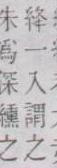 絳一入謂之
朱爲深纁之